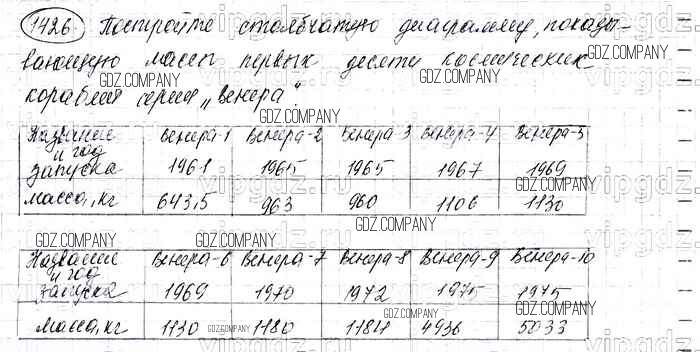 1426. Постройте столбчатую диаграмму, показы-
вающую массы первых десяти космических
GDZ.COMPANY GDZ.COMPANY GDZ.COMPANY
кораблей серии „Венера".
GDZ.COMPANY
Название и год запуска Венера-1 1961 Венера-2 1965 Венера-3 1965 Венера-4 1967 Венера-5 1969
GDZ.COMPANY GDZ.COMPANY
vipgdz.ru
масса, кг 643,5 963 960 1106 1130
GDZ.COMPANY GDZ.COMPANY
GDZ.COMPANY GDZ.COMPANY
Название и год запуска Венера-6 1969 Венера-7 1970 Венера-8 1972 Венера-9 1975 Венера-10 1975
GDZ.COMPANY GDZ.COMPANY
Масса, кг 1130 1180 1184 4936 5033
GDZ.COMPANY GDZ.COMPANY